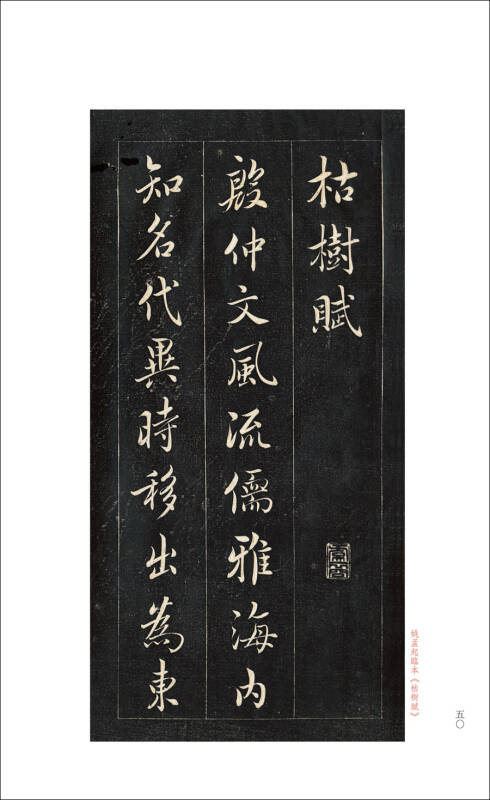 枯樹賦
殷仲文風流儒雅海内
知名代異時移出為東
姚孟起臨本《枯樹賦》
五〇